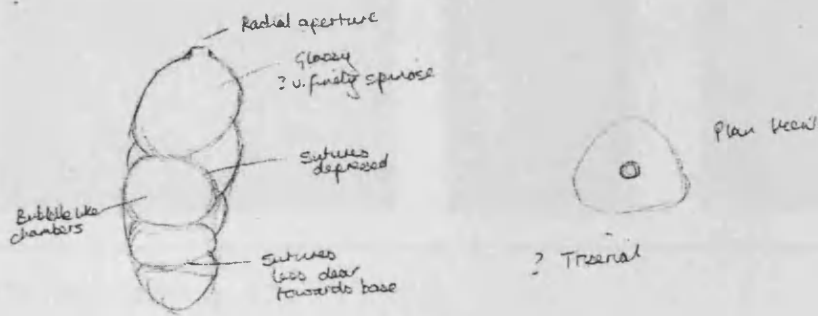 Radial aperture
Glassy
? v. finely spinose
Sutures
depressed
Bubble like
chambers
Sutures
less clear
towards base
Plan view
? Triserial